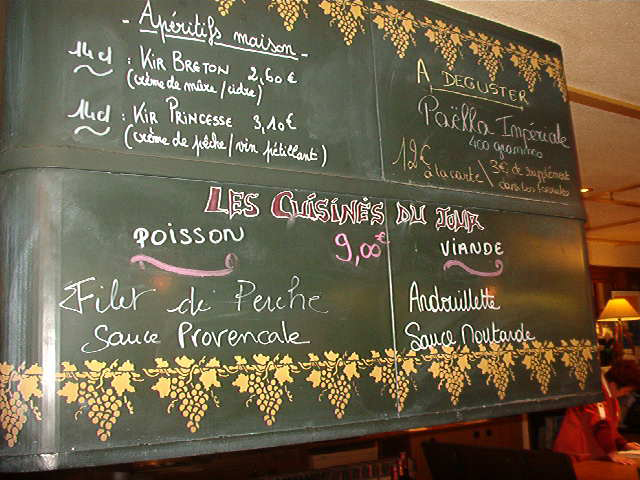 - Apéritifs maison -
14cl : Kir Breton 2,60 €
(crème de mûre / cidre)
14cl : Kir Princesse 3,10 €
(crème de pêche / vin pétillant)
A DEGUSTER
Paëlla Impériale
400 grammes
12€ à la carte \ 3€ de supplément
dans les formules
LES CUISINÉS DU JOUR
POISSON 9,00€ VIANDE
Filet de Perche
Sauce Provencale
Andouillette
Sauce Moutarde